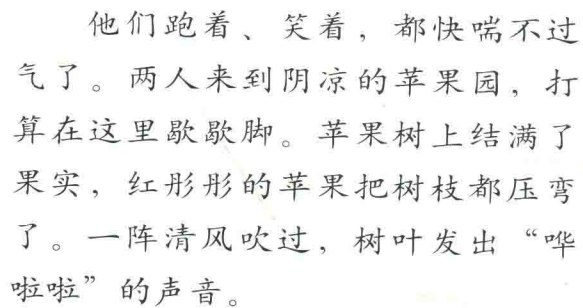 他们跑着、笑着，都快喘不过
气了。两人来到阴凉的苹果园，打
算在这里歇歇脚。苹果树上结满了
果实，红彤彤的苹果把树枝都压弯
了。一阵清风吹过，树叶发出“哗
啦啦”的声音。